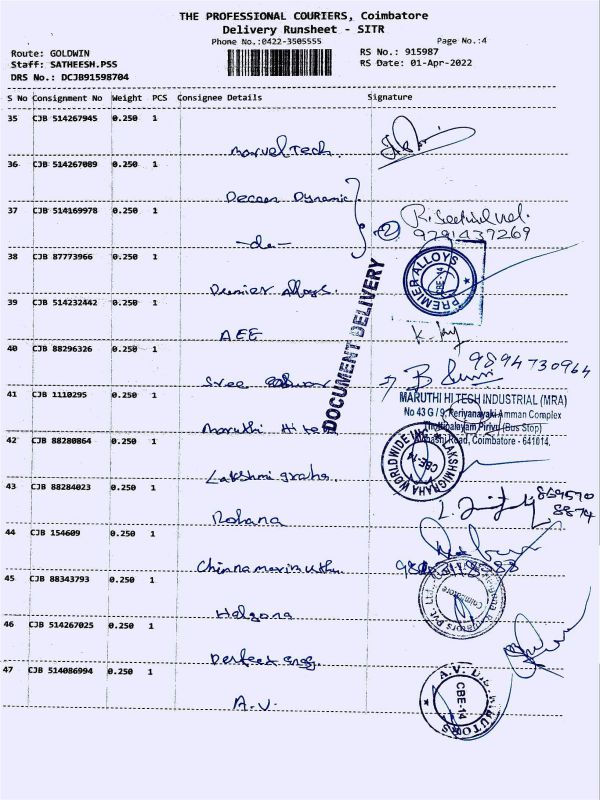 THE PROFESSIONAL COURIERS, Coimbatore
Delivery Runsheet - SITR
Phone No.:0422-3505555
Page No.:4
Route: GOLDWIN
RS No.: 915987
Staff: SATHEESH.PSS
RS Date: 01-Apr-2022
DRS No.: DCJB91598704
S No Consignment No Weight PCS Consignee Details Signature
35 CJB 514267945 0.250 1
Marvel Tech.
36 CJB 514267089 0.250 1
Deccan Dynamic
37 CJB 514169978 0.250 1
R.
9791437269
-do-
2
38 CJB 87773966 0.250 1
Premier Alloys.
PREMIER ALLOYS
CBE-14
39 CJB 514232442 0.250 1
AEE
DOCUMENT DELIVERY
40 CJB 88296326 0.250 1
9894730964
Sree
B
41 CJB 1110295 0.250 1
MARUTHI HI TECH INDUSTRIAL (MRA)
No 43 G / 9, Periyanayaki Amman Complex
Thottipalayam Pirivu (Bus Stop)
Road, Coimbatore - 641014.
Maruthi Hi tech
42 CJB 88280864 0.250 1
LAKSHMIGRAHA WORLDWIDE INC
CBE-14
Lakshmi graha.
43 CJB 88284023 0.250 1
Rohana
44 CJB 154609 0.250 1
Chinnamarimuthu
45 CJB 88343793 0.250 1
Coimbatore
Pvt. Ltd.
Helgona
46 CJB 514267025 0.250 1
Perfect Engg.
47 CJB 514086994 0.250 1
A.V.
CBE-14
A.V.